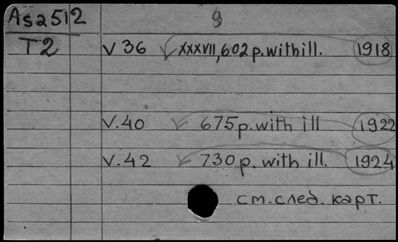 As2512 9
T2 V 36 XXXVII, 602 p. with ill. 1918
V. 40 675 p. with ill 1922
V. 42 730 p. with ill. 1924
см. след. карт.